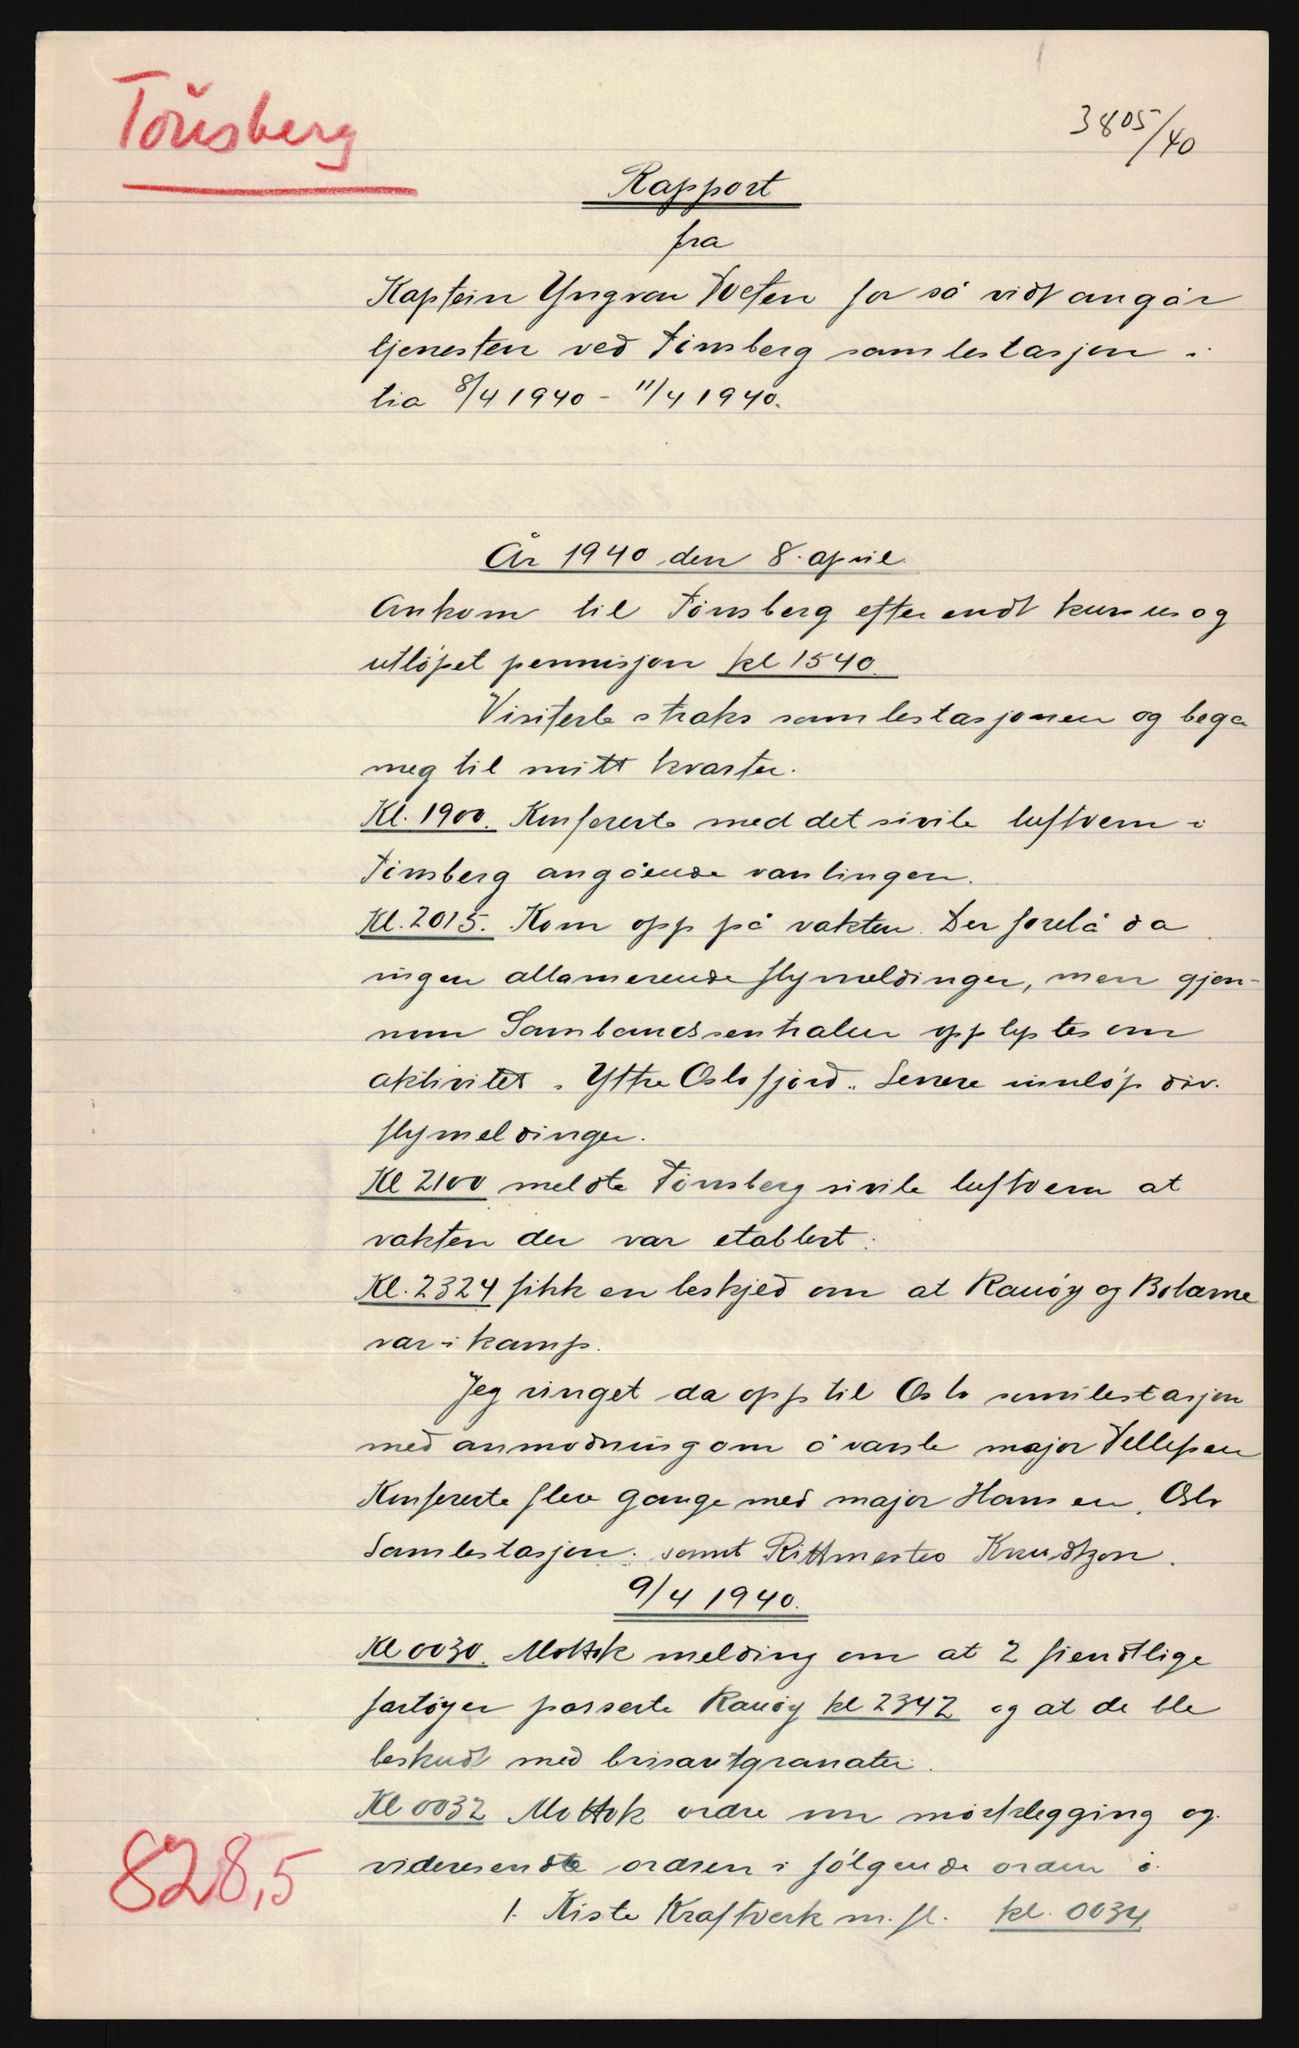 Tönsberg
3805/40
Rapport
fra
Kaptein Yngvar Tveten for så vidt angår
tjenesten ved Tönsberg samlestasjon i
tia 8/4 1940 - 11/4 1940.
År 1940 den 8. april.
Ankom til Tönsberg efter endt kursus og
utløpet permisjon kl 1540.
Visiterte straks samlestasjonen og bega
meg til mitt kvarter.
Kl. 1900. Konfererte med det sivile luftvern i
Tönsberg angående varslingen.
Kl. 2015. Kom opp på vakten. Der forelå da
ingen allarmerende flymeldinger, men gjen-
nom Sambandssentralen opplystes om
aktivitet i Ytre Oslofjord. Senere innløp div.
flymeldinger.
Kl 2100 meldte Tönsberg sivile luftvern at
vakten der var etablert.
Kl. 2324 fikk en beskjed om at Rauöy og Bolærne
var i kamp.
Jeg ringet da opp til Oslo samlestasjon
med anmodning om å varsle major
Konfererte flere gange med major Hansen, Oslo
Samlestasjon, samt Rittmester Knudtzon.
9/4 1940.
Kl 0030. Mottok melding om at 2 fiendtlige
fartøyer passerte Rauöy kl 2342 og at de ble
beskudt med brisantgranater.
Kl 0032 Mottok ordre om mørklegging og
videresendte ordren i følgende orden:
1. Kiste Kraftverk m. fl. kl. 0034
828,5